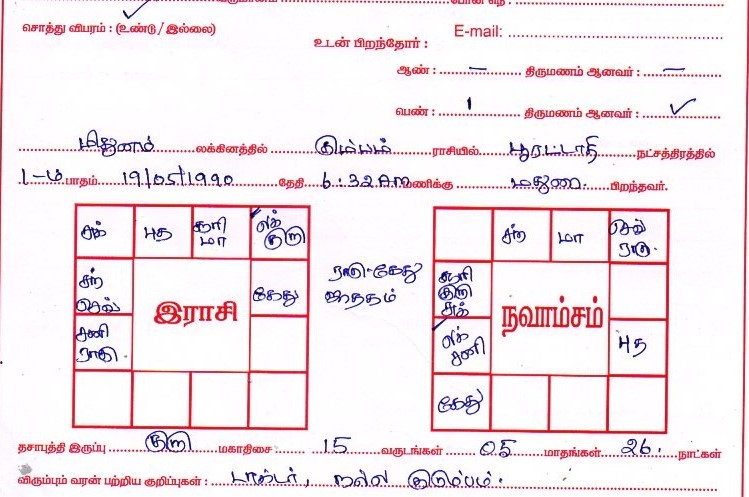 சொத்து விபரம் : (உண்டு / இல்லை)
E-mail:
உடன் பிறந்தோர் :
ஆண் : — திருமணம் ஆனவர் : —
பெண் : 1 திருமணம் ஆனவர் : ✓
மிதுனம் லக்கினத்தில் கும்பம் ராசியில் பூரட்டாதி நட்சத்திரத்தில்
1-ம் பாதம் 19/05/1990 தேதி 6:32 AM மணிக்கு மதுரை பிறந்தவர்.
சுக் புத சூரி மா லக் குரு
சந் செவ் கேது
சனி ராகு
இராசி
ராகு-கேது
ஜாதகம்
சந் மா செவ் ராகு
சூரி குரு சுக்
லக் சனி புத
கேது
நவாம்சம்
தசாபுத்தி இருப்பு குரு மகாதிசை 15 வருடங்கள் 05 மாதங்கள் 26 நாட்கள்
விரும்பும் வரன் பற்றிய குறிப்புகள் : டாக்டர், நல்ல குடும்பம்.